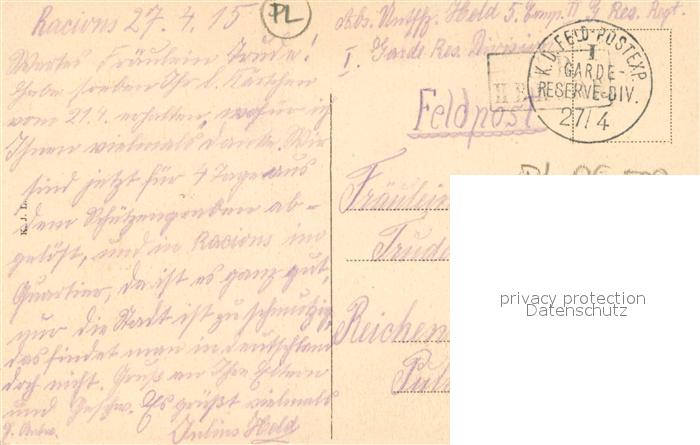 Racions 27.4.15
PL
Wertes Fräulein Trude!
Habe soeben Ihr l. Kärtchen
vom 21.4. erhalten, wofür ich
Ihnen vielmals danke. Wir
sind jetzt für 4 Tage aus
dem Schützengraben ab-
gelöst, und in Racions im
Quartier, da ist es ganz gut,
nur die Stadt ist zu schmutzig,
das findet man in Deutschland
doch nicht. Gruß an Ihre Eltern
und Geschw. Es grüßt vielmals
Julius Held
Abs. Untffz. Held 5. Comp. II G. Res. Regt.
I. Garde Res. Division
K.D. FELD-POSTEXP.
I.
GARDE-
RESERVE-DIV.
27/4
Feldpost
Fräulein
Trude
Reichen
privacy protection
Datenschutz